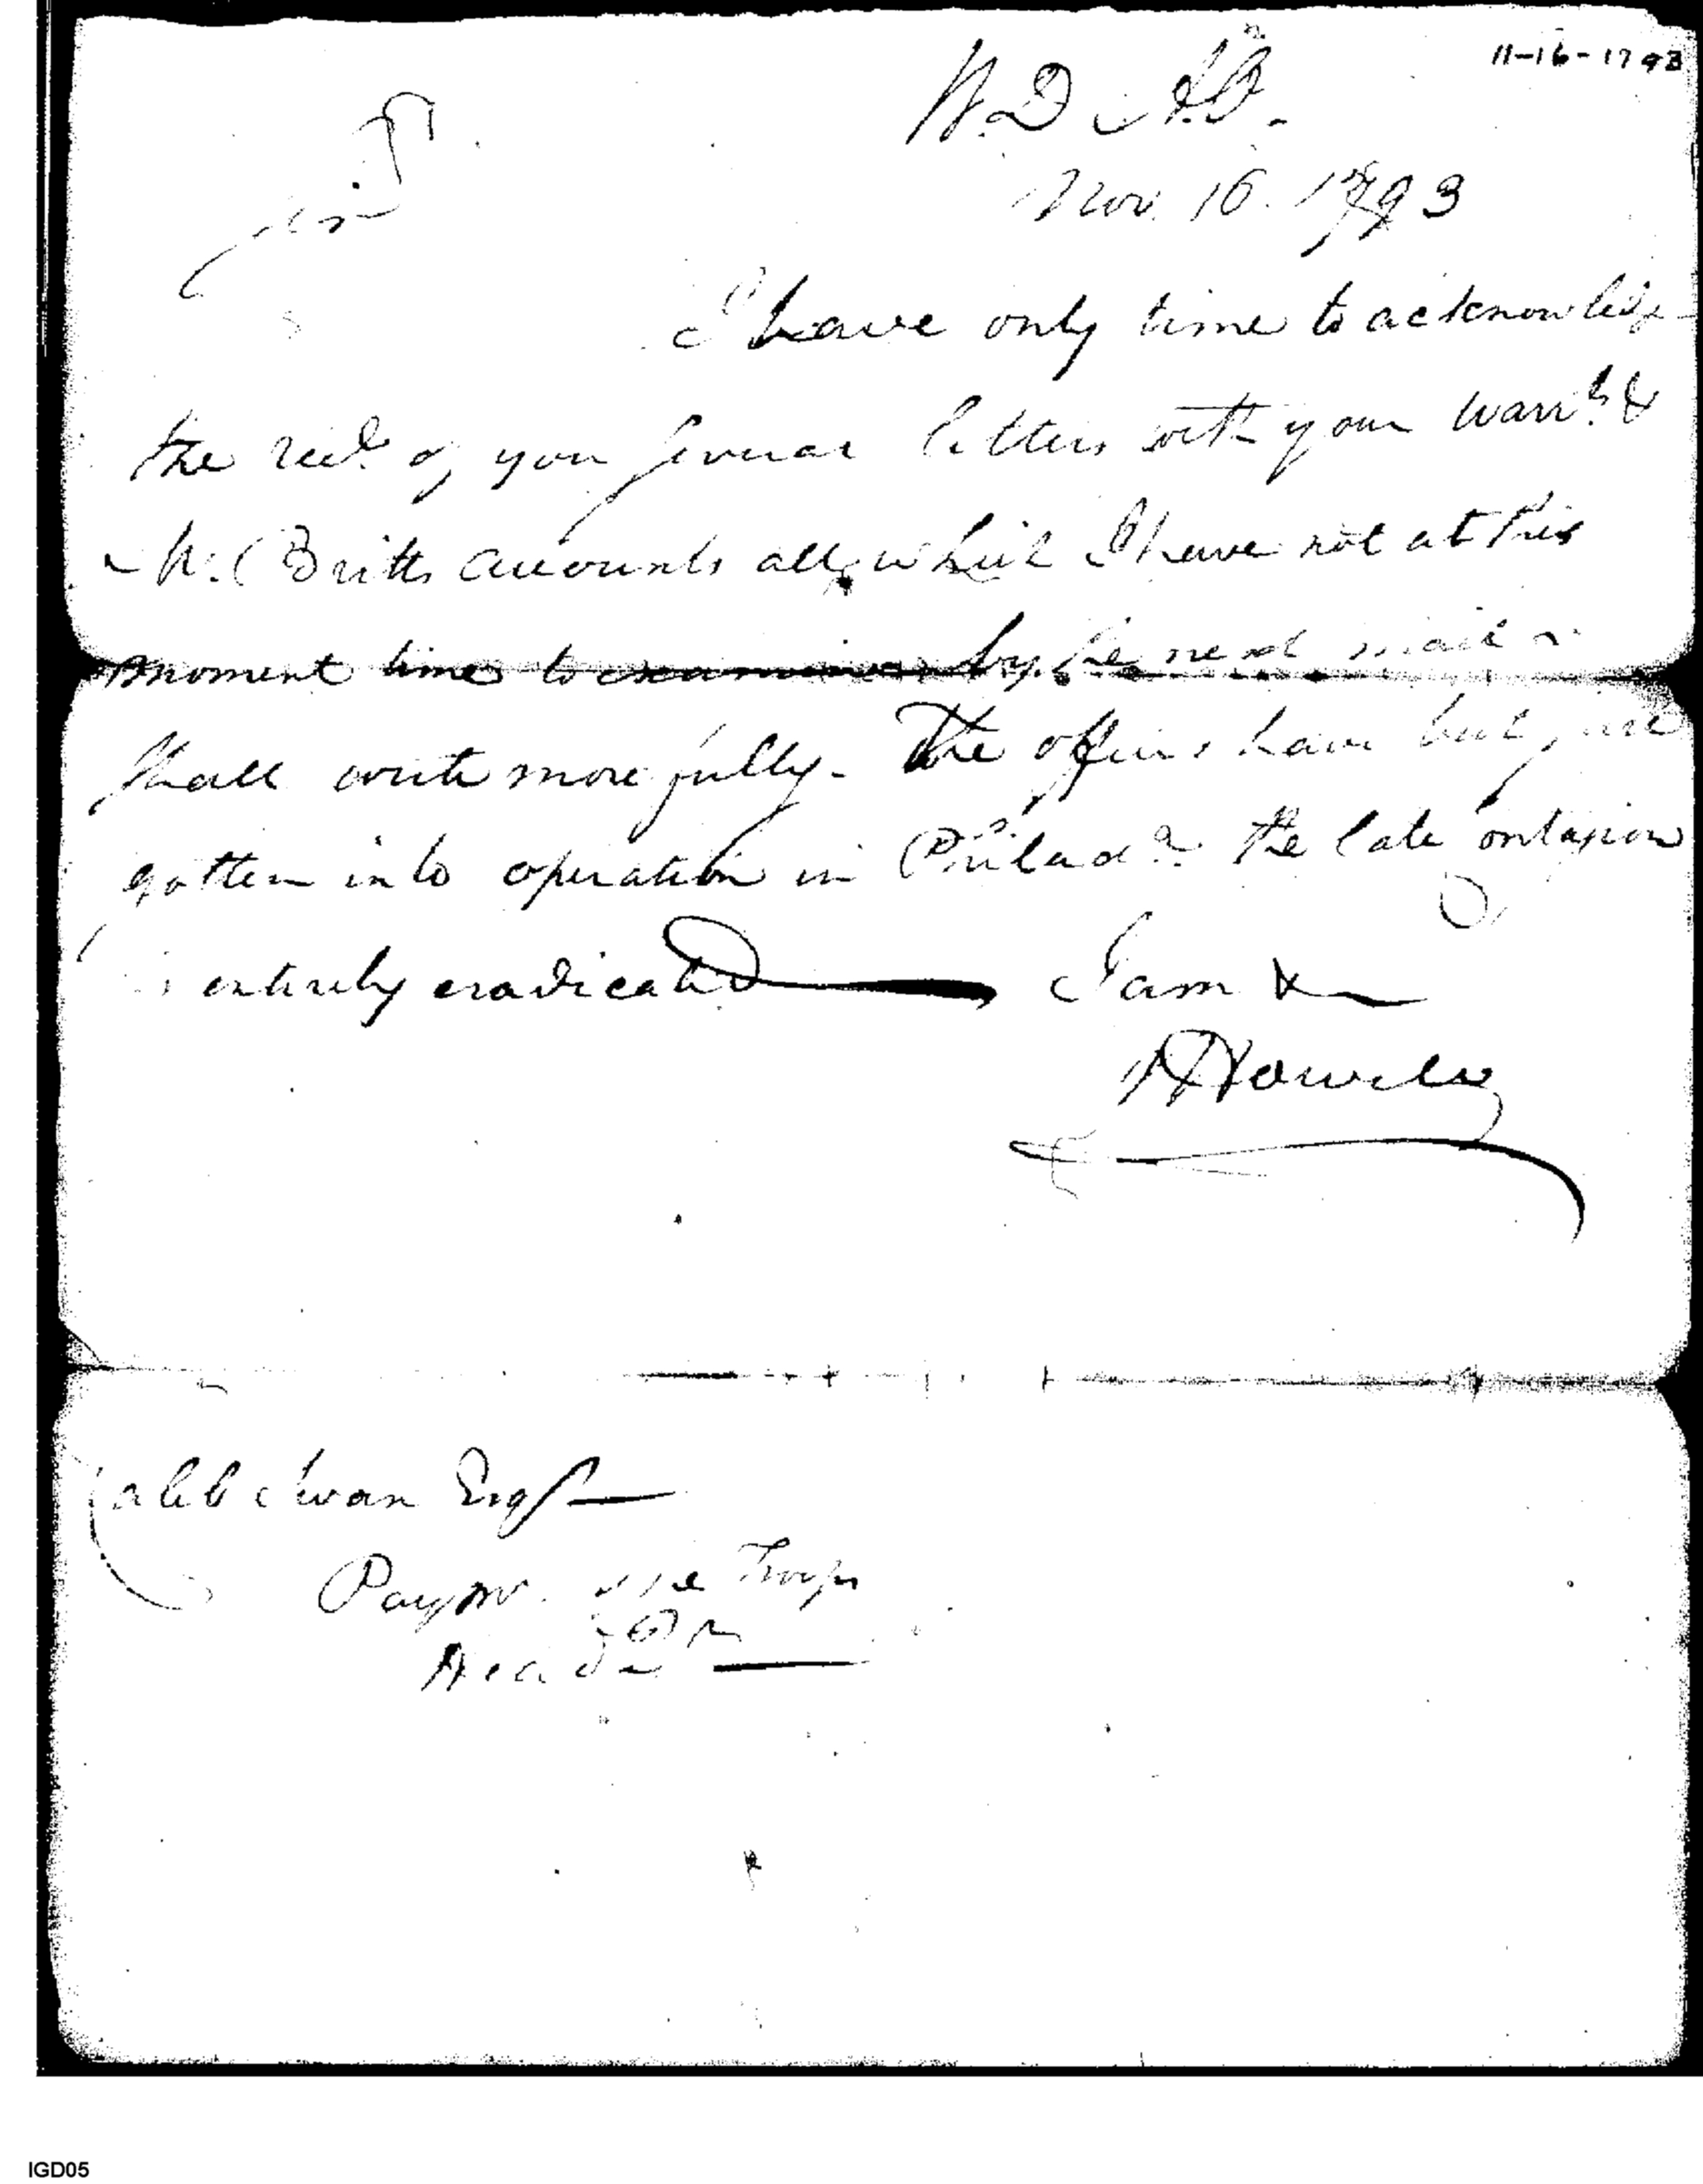 11-16-1793
W. D
Nov. 16. 1793
Sir
I have only time to acknowledge
the recd. of your several letters with your warrts. &
Mr. Britts accounts all which I have not at this
moment time to examine by the next mail
shall write more fully. The offices have but just
gotten into operation in Philada. the late contagion
is entirely eradicated I am &
J Howell
Caleb Swan Esqr
Paymr. of the Troops
Head Qrs
IGD05